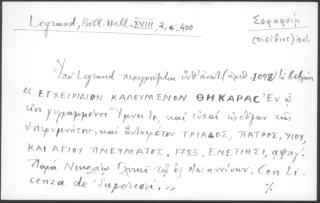 Legrand, Bibl. Hell. XVIII, 2, σ. 400
Σεραφείμ
(πισίδιος)
Ὑπὸ Legrand περιγράφεται (ἀριθ. 1098) τὸ βιβλίον
« ΕΓΧΕΙΡΙΔΙΟΝ ΚΑΛΟΥΜΕΝΟΝ ΘΗΚΑΡΑΣ Ἐν ᾧ
εἰσι γεγραμμένοι Ὕμνοι καὶ εὐχαὶ εἰς δόξαν τῆς
ὑπερυμνήτου, καὶ ΤΡΙΑΔΟΣ, ΠΑΤΡΟΣ, ΥΙΟΥ,
ΚΑΙ ΑΓΙΟΥ ΠΝΕΥΜΑΤΟΣ. 1783. ΕΝΕΤΙΗΣΙ, αψπγ.
Παρὰ Νικολάῳ Γλυκεῖ τῷ ἐξ Ἰωαννίνων. Con Li-
cenza de' Superiori. »
%